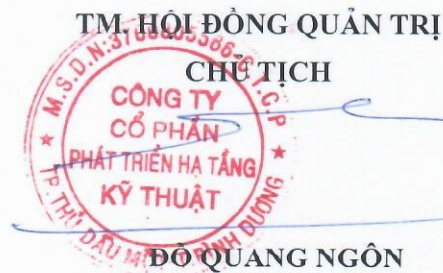 TM. HỘI ĐỒNG QUẢN TRỊ
CHỦ TỊCH
M.S.D.N:
C.T.C.P
CÔNG TY
CỔ PHẦN
PHÁT TRIỂN HẠ TẦNG
KỸ THUẬT
TP. THỦ DẦU
BÌNH DƯƠNG
ĐỖ QUANG NGÔN